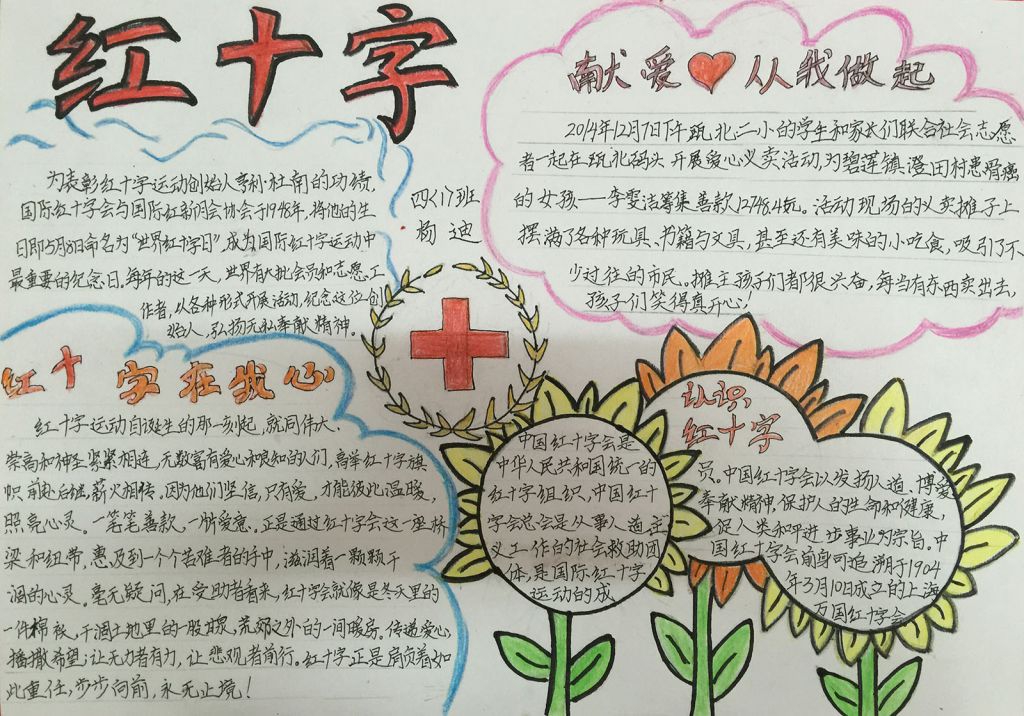 红十字
为表彰红十字运动创始人亨利·杜南的功绩,
国际红十字会与国际红新月会协会于1948年,将他的生
日即5月8日命名为“世界红十字日”成为国际红十字运动中
最重要的纪念日。每年的这一天,世界有大批会员和志愿工
作者,从各种形式开展活动,纪念这位创
始人,弘扬无私奉献精神。
四(1)班
杨迪
献爱从我做起
2014年12月7日下午瓯北二小的学生和家长们联合社会志愿
者一起在瓯北码头开展爱心义卖活动,为碧莲镇澄田村患骨癌
的女孩——李雯洁筹集善款12748.4元。活动现场的义卖摊子上
摆满了各种玩具、书籍与文具,甚至还有美味的小吃食,吸引了不
少过往的市民。摊主孩子们都很兴奋,每当有东西卖出去,
孩子们笑得真开心!
红十字在我心
红十字运动自诞生的那一刻起,就同伟大、
崇高和神圣紧紧相连,无数富有爱心和良知的人们,高举红十字旗
帜前赴后继,薪火相传,因为他们坚信,只有爱,才能彼此温暖,
照亮心灵。一笔笔善款,一份爱意,正是通过红十字会这一座桥
梁和纽带,惠及到一个个苦难者的手中,滋润着一颗颗干
涸的心灵。毫无疑问,在受助者看来,红十字会就像是冬天里的
一件棉袄,干涸土地里的一股甘泉,荒郊之外的一间暖房。传递爱心
播撒希望;让无力者有力,让悲观者前行。红十字正是肩负着如
此重任,步步向前,永无止境!
中国红十字会是
中华人民共和国统一的
红十字组织,中国红十
字会总会是从事人道主
义工作的社会救助团
体,是国际红十字
运动的成
认识
红十字
员。中国红十字会以发扬人道、博爱
奉献精神,保护人的生命和健康,
促人类和平进步事业为宗旨。中
国红十字会前身可追溯于1904
年3月10日成立的上海
万国红十字会